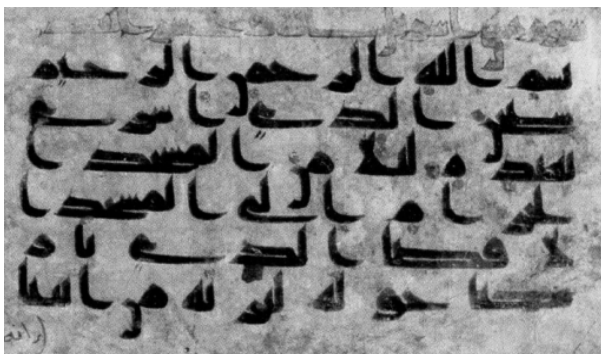 بسم الله الرحمن الرحيم
سبحن الذي اسرى
بعبده ليلا من المسجد ا
لحرام الى المسجد ا
لاقصا الذي بر
كنا حوله لنريه من ايتنا